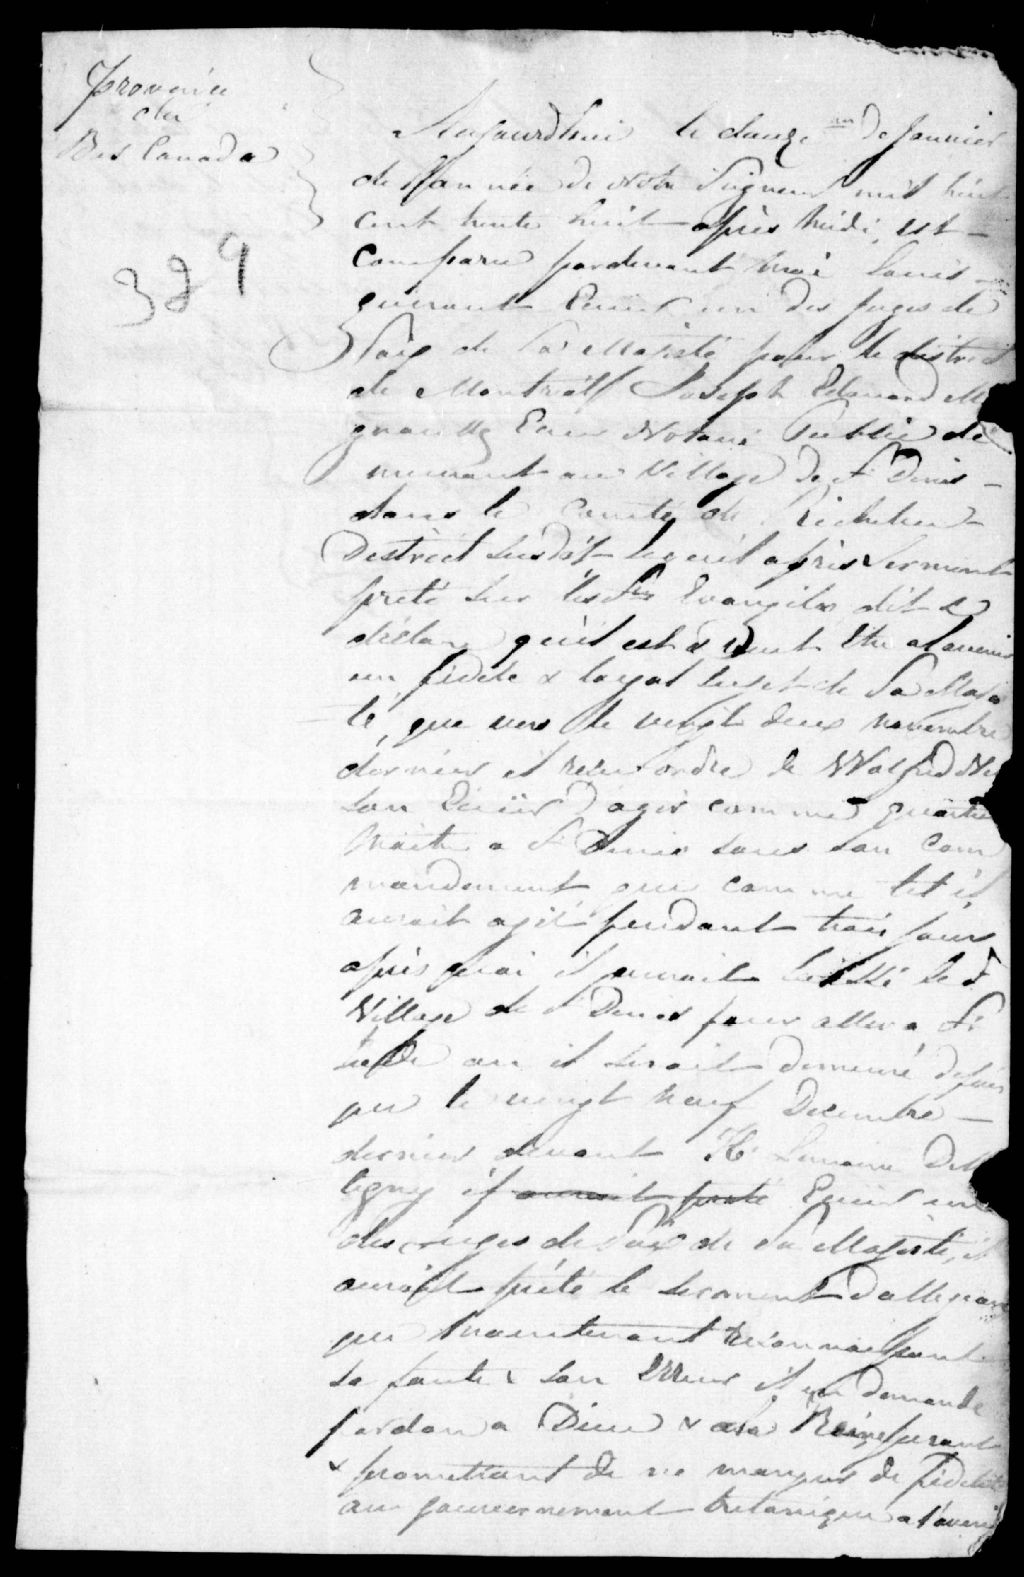 Province
du
Bas Canada
389
Aujourdhui le douze de Janvier
de l'année de Notre Seigneur mil huit
cent trente huit après Midi, est
comparu pardevant moi Louis
Guérout Ecuier un des Juges de
Paix de Sa Majesté pour le district
de Montréal Joseph Edouard Mi
gnault Ecuier Notaire Public de
meurant au Village de St Denis
dans le Comté de Richelieu
District susdit lequel après serment
prêté sur les Sts Evangiles dit &
déclare qu'il est & veut être a l'avenir
un fidele & loyal sujet de Sa Majes
té, que vers le vingt deux novembre
dernier il recu l'ordre de Wolfred Nel
son Ecuier d'agir comme quartier
Maitre a St Denis sous son com
mandement que comme tel il
aurait agit pendant trois jours
après quoi il aurait laissé le dt
Village de St Denis pour aller a St
où il serait demeuré depuis
que le vingt neuf Decembre
dernier devant Lemoine Del
igny il aurait prêté Ecuier un
des juges de Paix de Sa Majesté, il
aurait prêté le serment d'allegeance
que maintenant reconnaissant
sa faute & son erreur il en demande
pardon a Dieu & a la Reine jurant
& promettant de ne manquer de fidelité
au gouvernement britanique a l'avenir